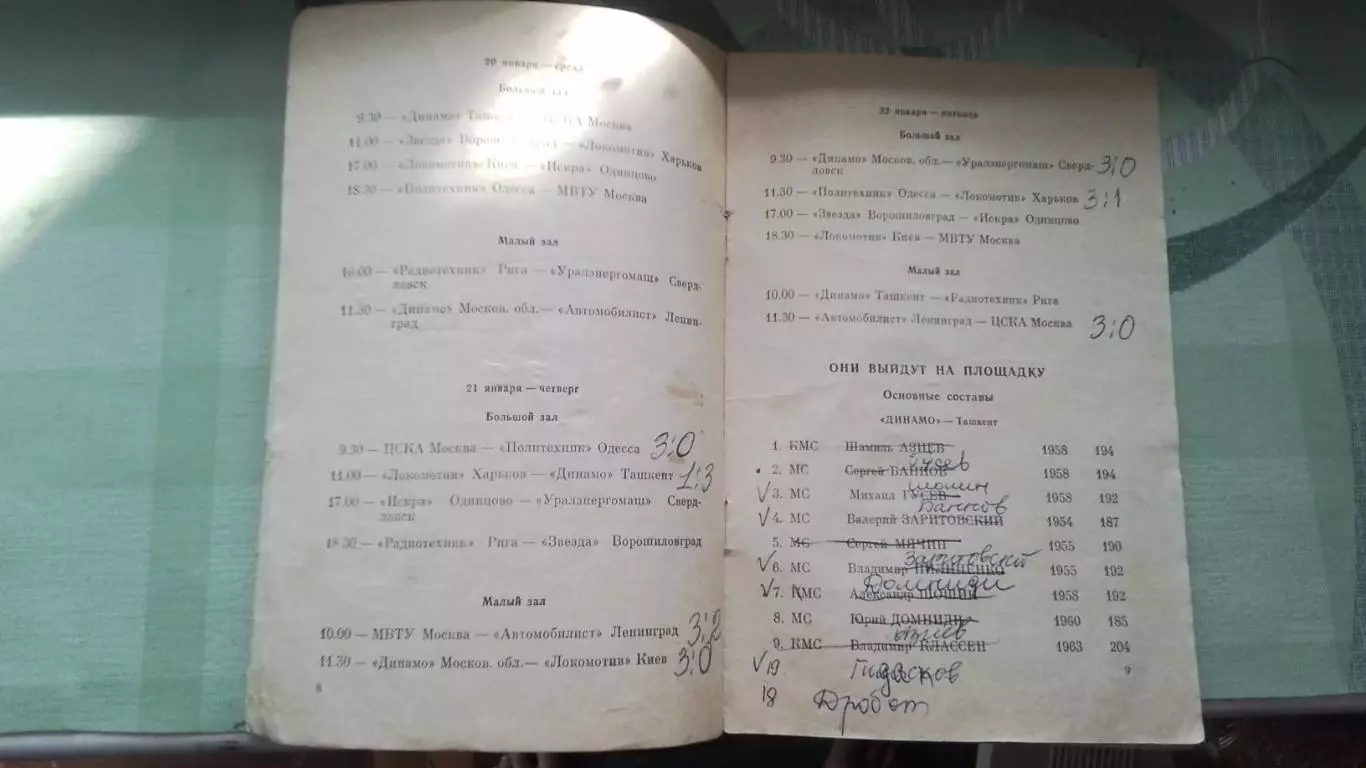 20 января — среда
Большой зал
9.30 — «Динамо» Ташкент — ЦСКА Москва
11.00 — «Звезда» Ворошиловград — «Локомотив» Харьков
17.00 — «Локомотив» Киев — «Искра» Одинцово
18.30 — «Политехник» Одесса — МВТУ Москва
Малый зал
10.00 — «Радиотехник» Рига — «Уралэнергомаш» Сверд-
ловск
11.30 — «Динамо» Москов. обл.— «Автомобилист» Ленин-
град
21 января — четверг
Большой зал
9.30 — ЦСКА Москва — «Политехник» Одесса 3:0
11.00 — «Локомотив» Харьков — «Динамо» Ташкент 1:3
17.00 — «Искра» Одинцово — «Уралэнергомаш» Сверд-
ловск
18.30 — «Радиотехник» Рига — «Звезда» Ворошиловград
Малый зал
10.00 — МВТУ Москва — «Автомобилист» Ленинград 3:2
11.30 — «Динамо» Москов. обл.— «Локомотив» Киев 3:0
8
22 января — пятница
Большой зал
9.30 — «Динамо» Москов. обл.— «Уралэнергомаш» Сверд- 3:0
ловск
11.30 — «Политехник» Одесса — «Локомотив» Харьков 3:1
17.00 — «Звезда» Ворошиловград — «Искра» Одинцово
18.30 — «Локомотив» Киев — МВТУ Москва
Малый зал
10.00 — «Динамо» Ташкент — «Радиотехник» Рига
11.30 — «Автомобилист» Ленинград — ЦСКА Москва 3:0
ОНИ ВЫЙДУТ НА ПЛОЩАДКУ
Основные составы
«ДИНАМО» — Ташкент
1. КМС Шамиль АЗИЕВ 1958 194
Гусев
2. МС Сергей БАННОВ 1958 194
Шошин
V 3. МС Михаил ГУСЕВ 1958 192
Баннов
V 4. МС Валерий ЗАРИТОВСКИЙ 1954 187
5. МС Сергей МЯЧИН 1955 190
Заритовский
V 6. МС Владимир ПИЛИПЕНКО 1955 192
Домниди
V 7. КМС Александр ШОШИН 1958 192
8. МС Юрий ДОМНИДИ 1960 185
Азиев
9. КМС Владимир КЛАССЕН 1963 204
V 19
18 Дробот
9